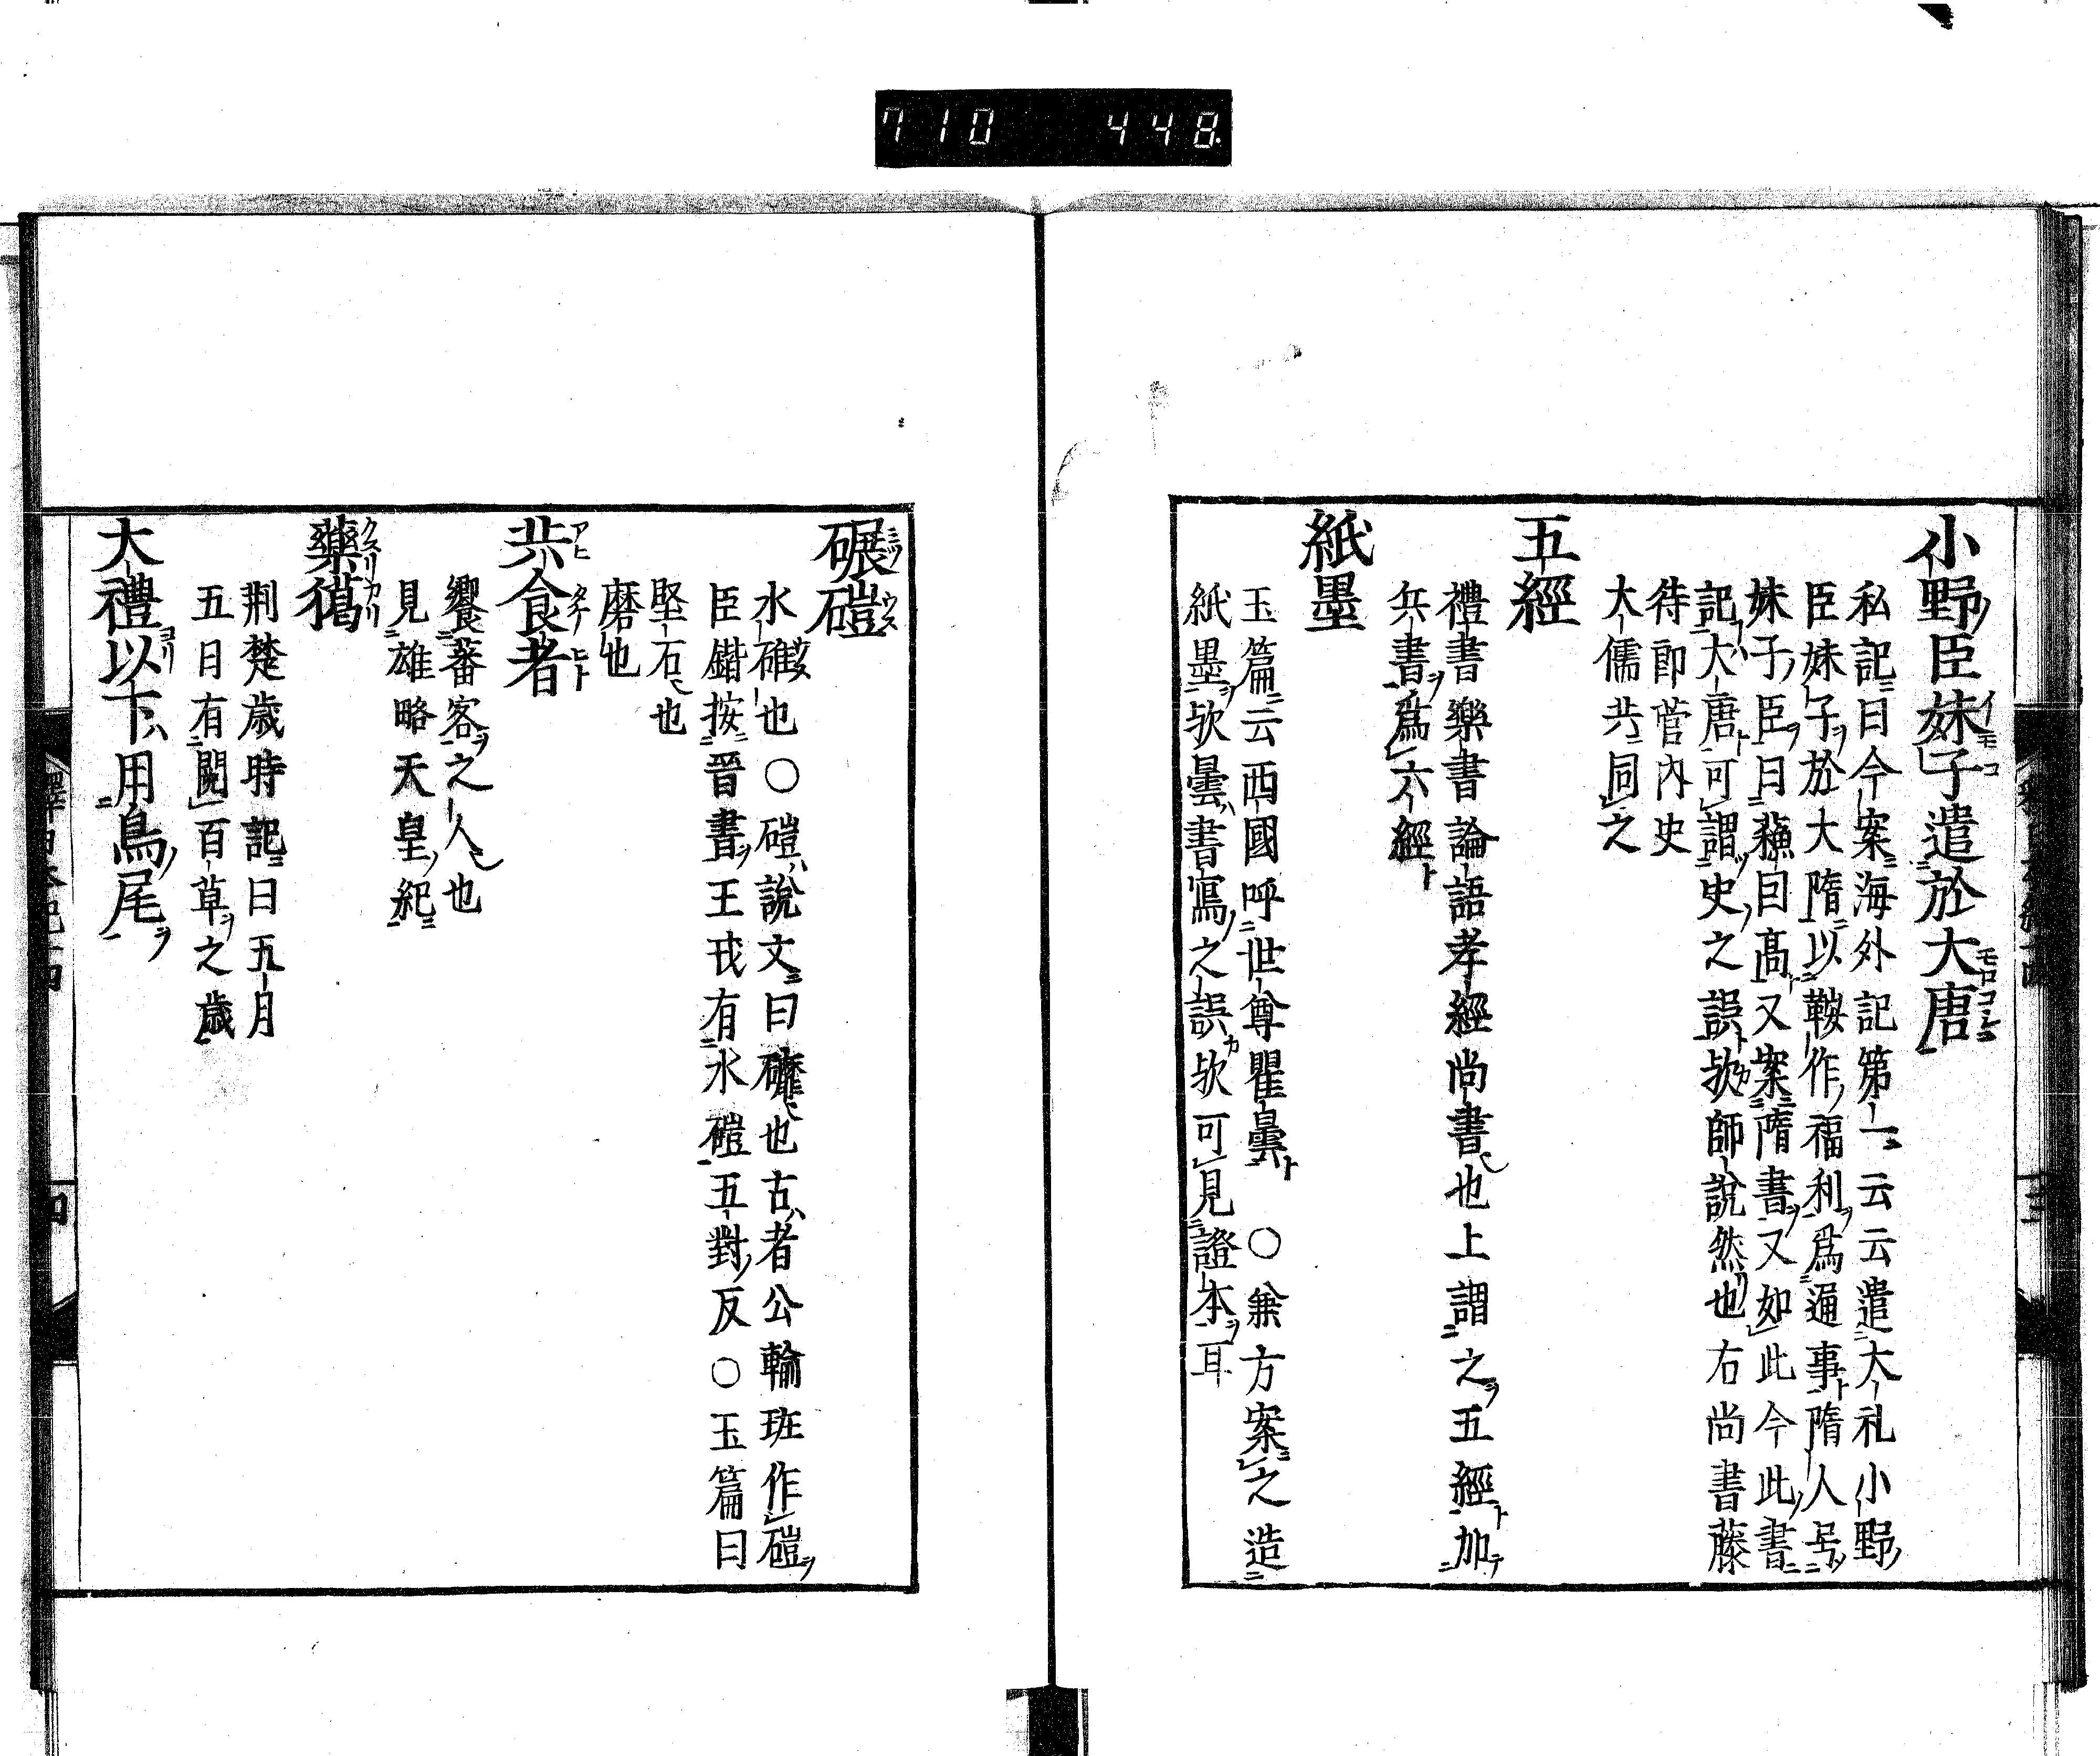 710 448
小野臣妹子遣於大唐
私記曰今案海外記第一云云遣大礼小野
臣妹子於大隋以鞍作福利爲通事隋人号
妹子臣曰蘓因高又案隋書又如此今此書
記大唐可謂史之誤欤師說然也右尚書藤
侍郎菅內史
大儒共同之
五經
禮書樂書論語孝經尚書也上謂之五經加
兵書爲六經
紙墨
玉篇云西國呼世尊瞿曇〇兼方案之造
紙墨欤曇書寫之誤欤可見證本耳
碾磑
水碓也〇磑說文曰䃺也古者公輸班作磑
臣鍇按晉書王戎有水磑五對反〇玉篇曰
堅石也
磨也
共食者
饗蕃客之人也
見雄略天皇紀
藥獦
荆楚歲時記曰五月
五日有鬪百草之歲
大禮以下用鳥尾
四